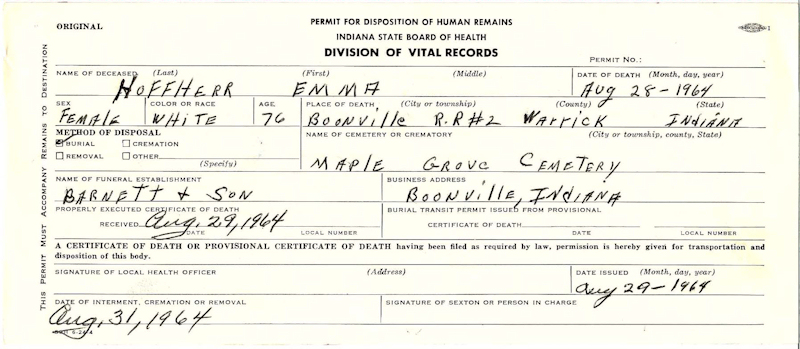 ORIGINAL
PERMIT FOR DISPOSITION OF HUMAN REMAINS
INDIANA STATE BOARD OF HEALTH
DIVISION OF VITAL RECORDS
PERMIT NO.:
THIS PERMIT MUST ACCOMPANY REMAINS TO DESTINATION
NAME OF DECEASED (Last) (First) (Middle) DATE OF DEATH (Month, day, year)
HOFFHERR EMMA Aug 28-1964
SEX COLOR OR RACE AGE PLACE OF DEATH (City or township) (County) (State)
FEMALE WHITE 76 BOONVILLE R.R#2 WARRICK INDIANA
METHOD OF DISPOSAL NAME OF CEMETERY OR CREMATORY (City or township, county, State)
BURIAL CREMATION
REMOVAL OTHER
(Specify)
MAPLE GROVE CEMETERY
NAME OF FUNERAL ESTABLISHMENT BUSINESS ADDRESS
BARNETT & SON BOONVILLE, INDIANA
PROPERLY EXECUTED CERTIFICATE OF DEATH BURIAL TRANSIT PERMIT ISSUED FROM PROVISIONAL
RECEIVED Aug. 29, 1964 CERTIFICATE OF DEATH
DATE LOCAL NUMBER DATE LOCAL NUMBER
A CERTIFICATE OF DEATH OR PROVISIONAL CERTIFICATE OF DEATH having been filed as required by law, permission is hereby given for transportation and
disposition of this body.
SIGNATURE OF LOCAL HEALTH OFFICER (Address) DATE ISSUED (Month, day, year)
Aug 29-1964
DATE OF INTERMENT, CREMATION OR REMOVAL SIGNATURE OF SEXTON OR PERSON IN CHARGE
Aug. 31, 1964